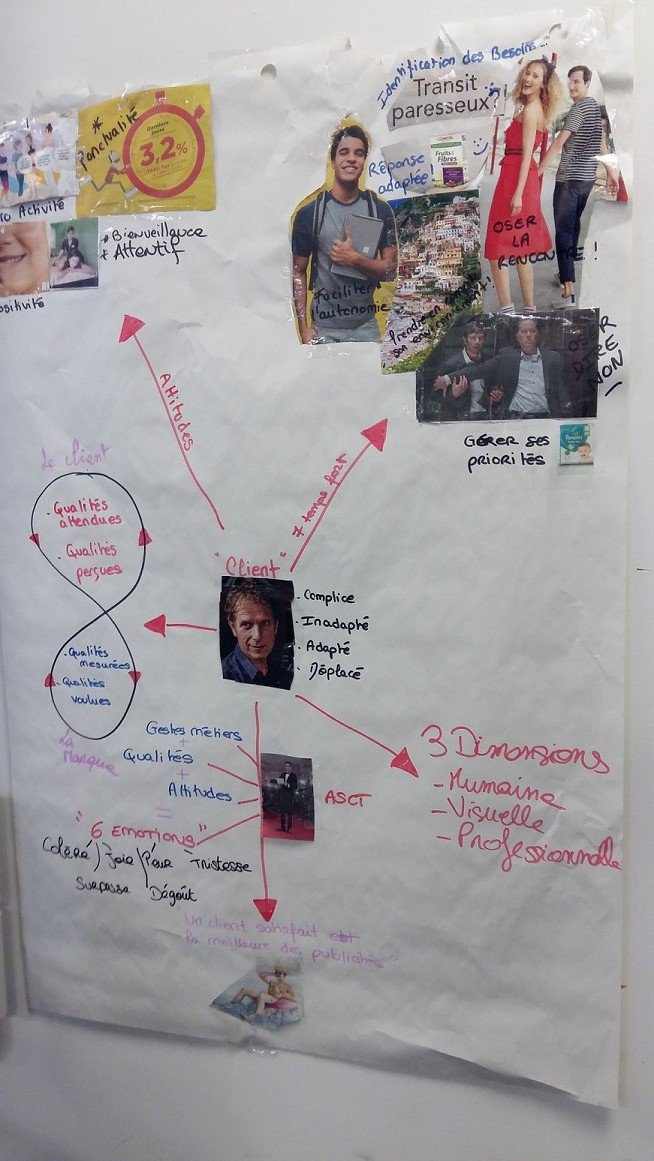 Identification des Besoins...
Transit
paresseux
Réponse
adaptée!
Fruits &
Fibres
OSER
LA
RENCONTRE !
Faciliter
l'autonomie
Prendre en compte
son environnement!
OSER
DIRE
NON
GÉRER SES
PRIORITÉS
* Ponctualité
Derniers
jours
3,2%
Activité
* Bienveillance
* Attentif
ositivité
Attitudes
7 temps fort
Le Client
- Qualités
attendues
- Qualités
perçues
- Qualités
mesurées
- Qualités
voulues
La
Marque
"Client"
- Complice
- Inadapté
- Adapté
- Déplacé
Gestes métiers
+
Qualités
+
Attitudes
=
"6 EMOTIONS"
ASCT
Colère / Joie / Peur Tristesse
Surprise Dégoût
3 Dimensions
- Humaine
- Visuelle
- Professionnelle
"Un client satisfait est
la meilleure des publicités"